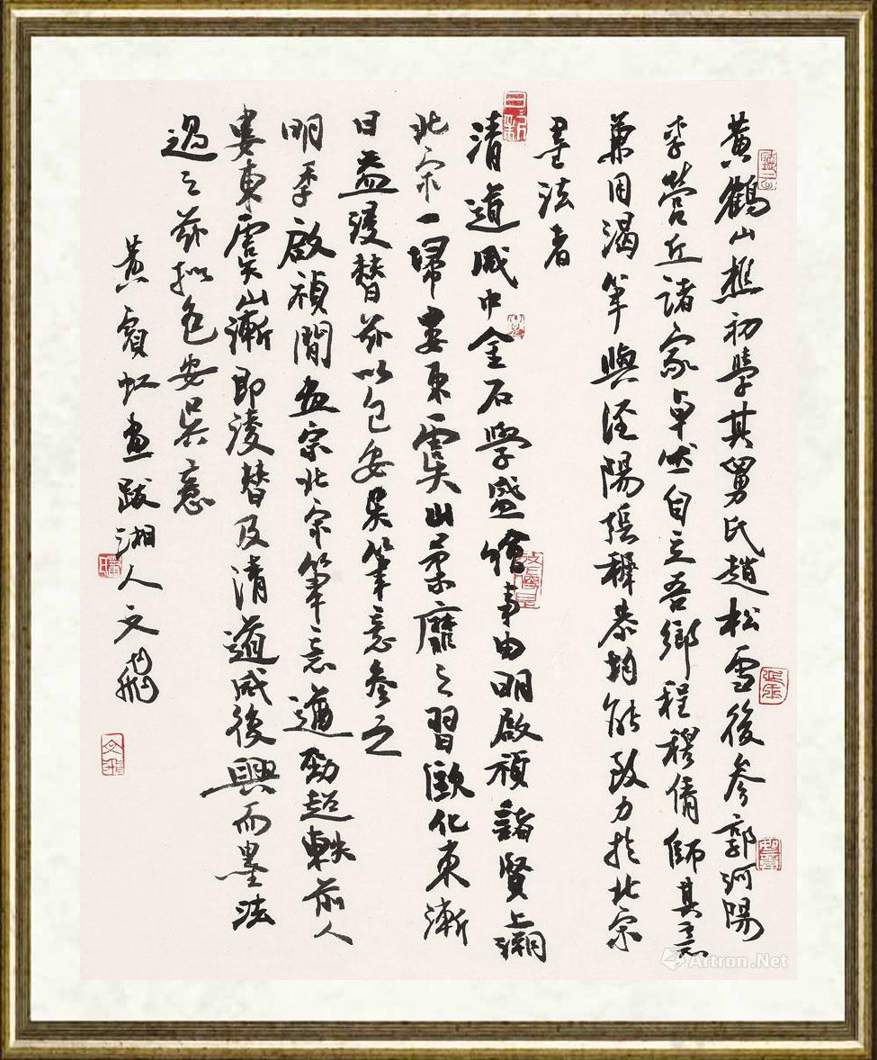 黄鶴山樵初學其舅氏趙松雪後參郭河陽
李營丘諸家卓然自立吾鄉程穆倩師其意
兼用渴筆與涇陽張穉恭均能致力於北宗
墨法者
清道咸中金石學盛繪事由明啟禎諸賢上溯
北宗一掃婁東虞山柔靡之習歐化東漸
日益淩替茲以包安吳筆意參之
明季啟禎間畫宗北宗筆意遒勁超軼前人
婁東虞山漸即淩替及清道咸後興而墨法
過之茲擬包安吳意
黄賓虹畫跋湘人文飛
Artron.Net